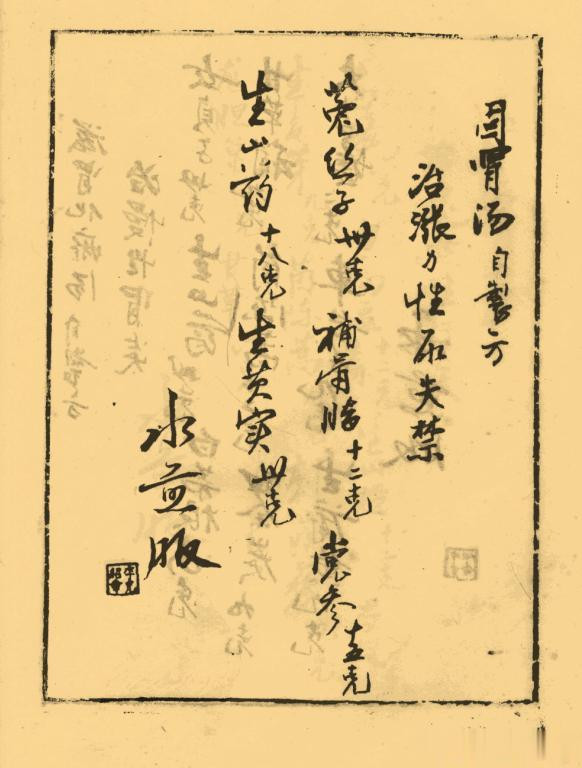 固肾汤 自製方
治漲力性尿失禁
菟丝子卅克 補骨脂十二克 党参十五克
生山药十八克 生芡实卅克
水煎服